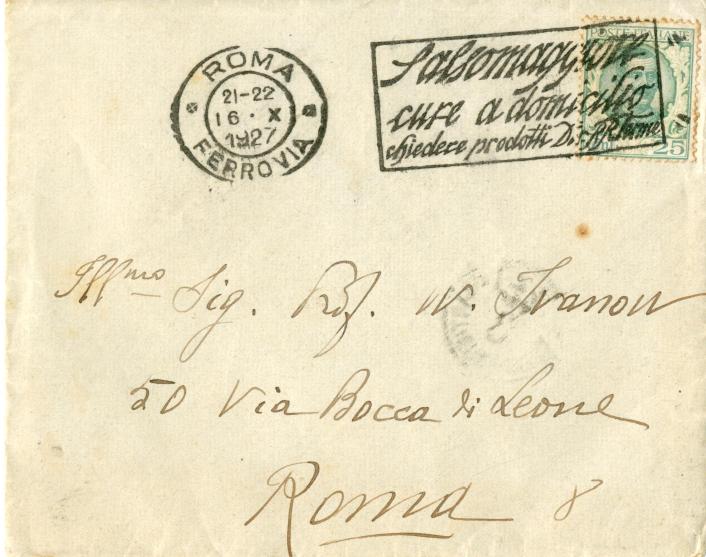 ROMA
21-22
16 · X
1927
FERROVIA
Salsomaggiore
cure a domicilio
chiedere prodotti D. RR. Terme
POSTE ITALIANE
25
Ill^mo Sig. Prof. W. Ivanow
50 Via Bocca di Leone
Roma 8